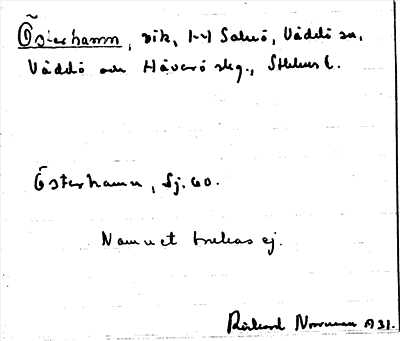 Österhamn, vik, 1-4 Salnö, Väddö sn,
Väddö och Häverö skg., Sthlms l.
Österhamn, Sj. 60.
Namnet brukas ej.
Rickard Norrman 1931.